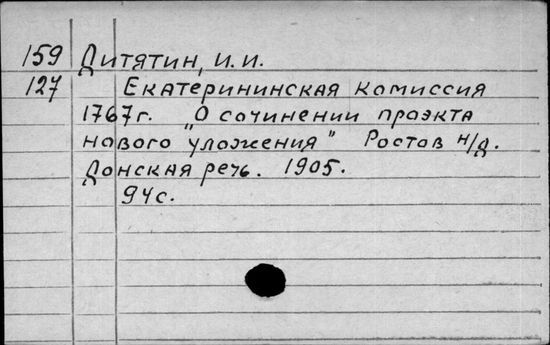 159 Дитятин, И.И.
127 Екатерининская комиссия
1767г. "О сочинении проэкта
нового уложения" Ростов н/Д.
Донская речь. 1905.
94с.